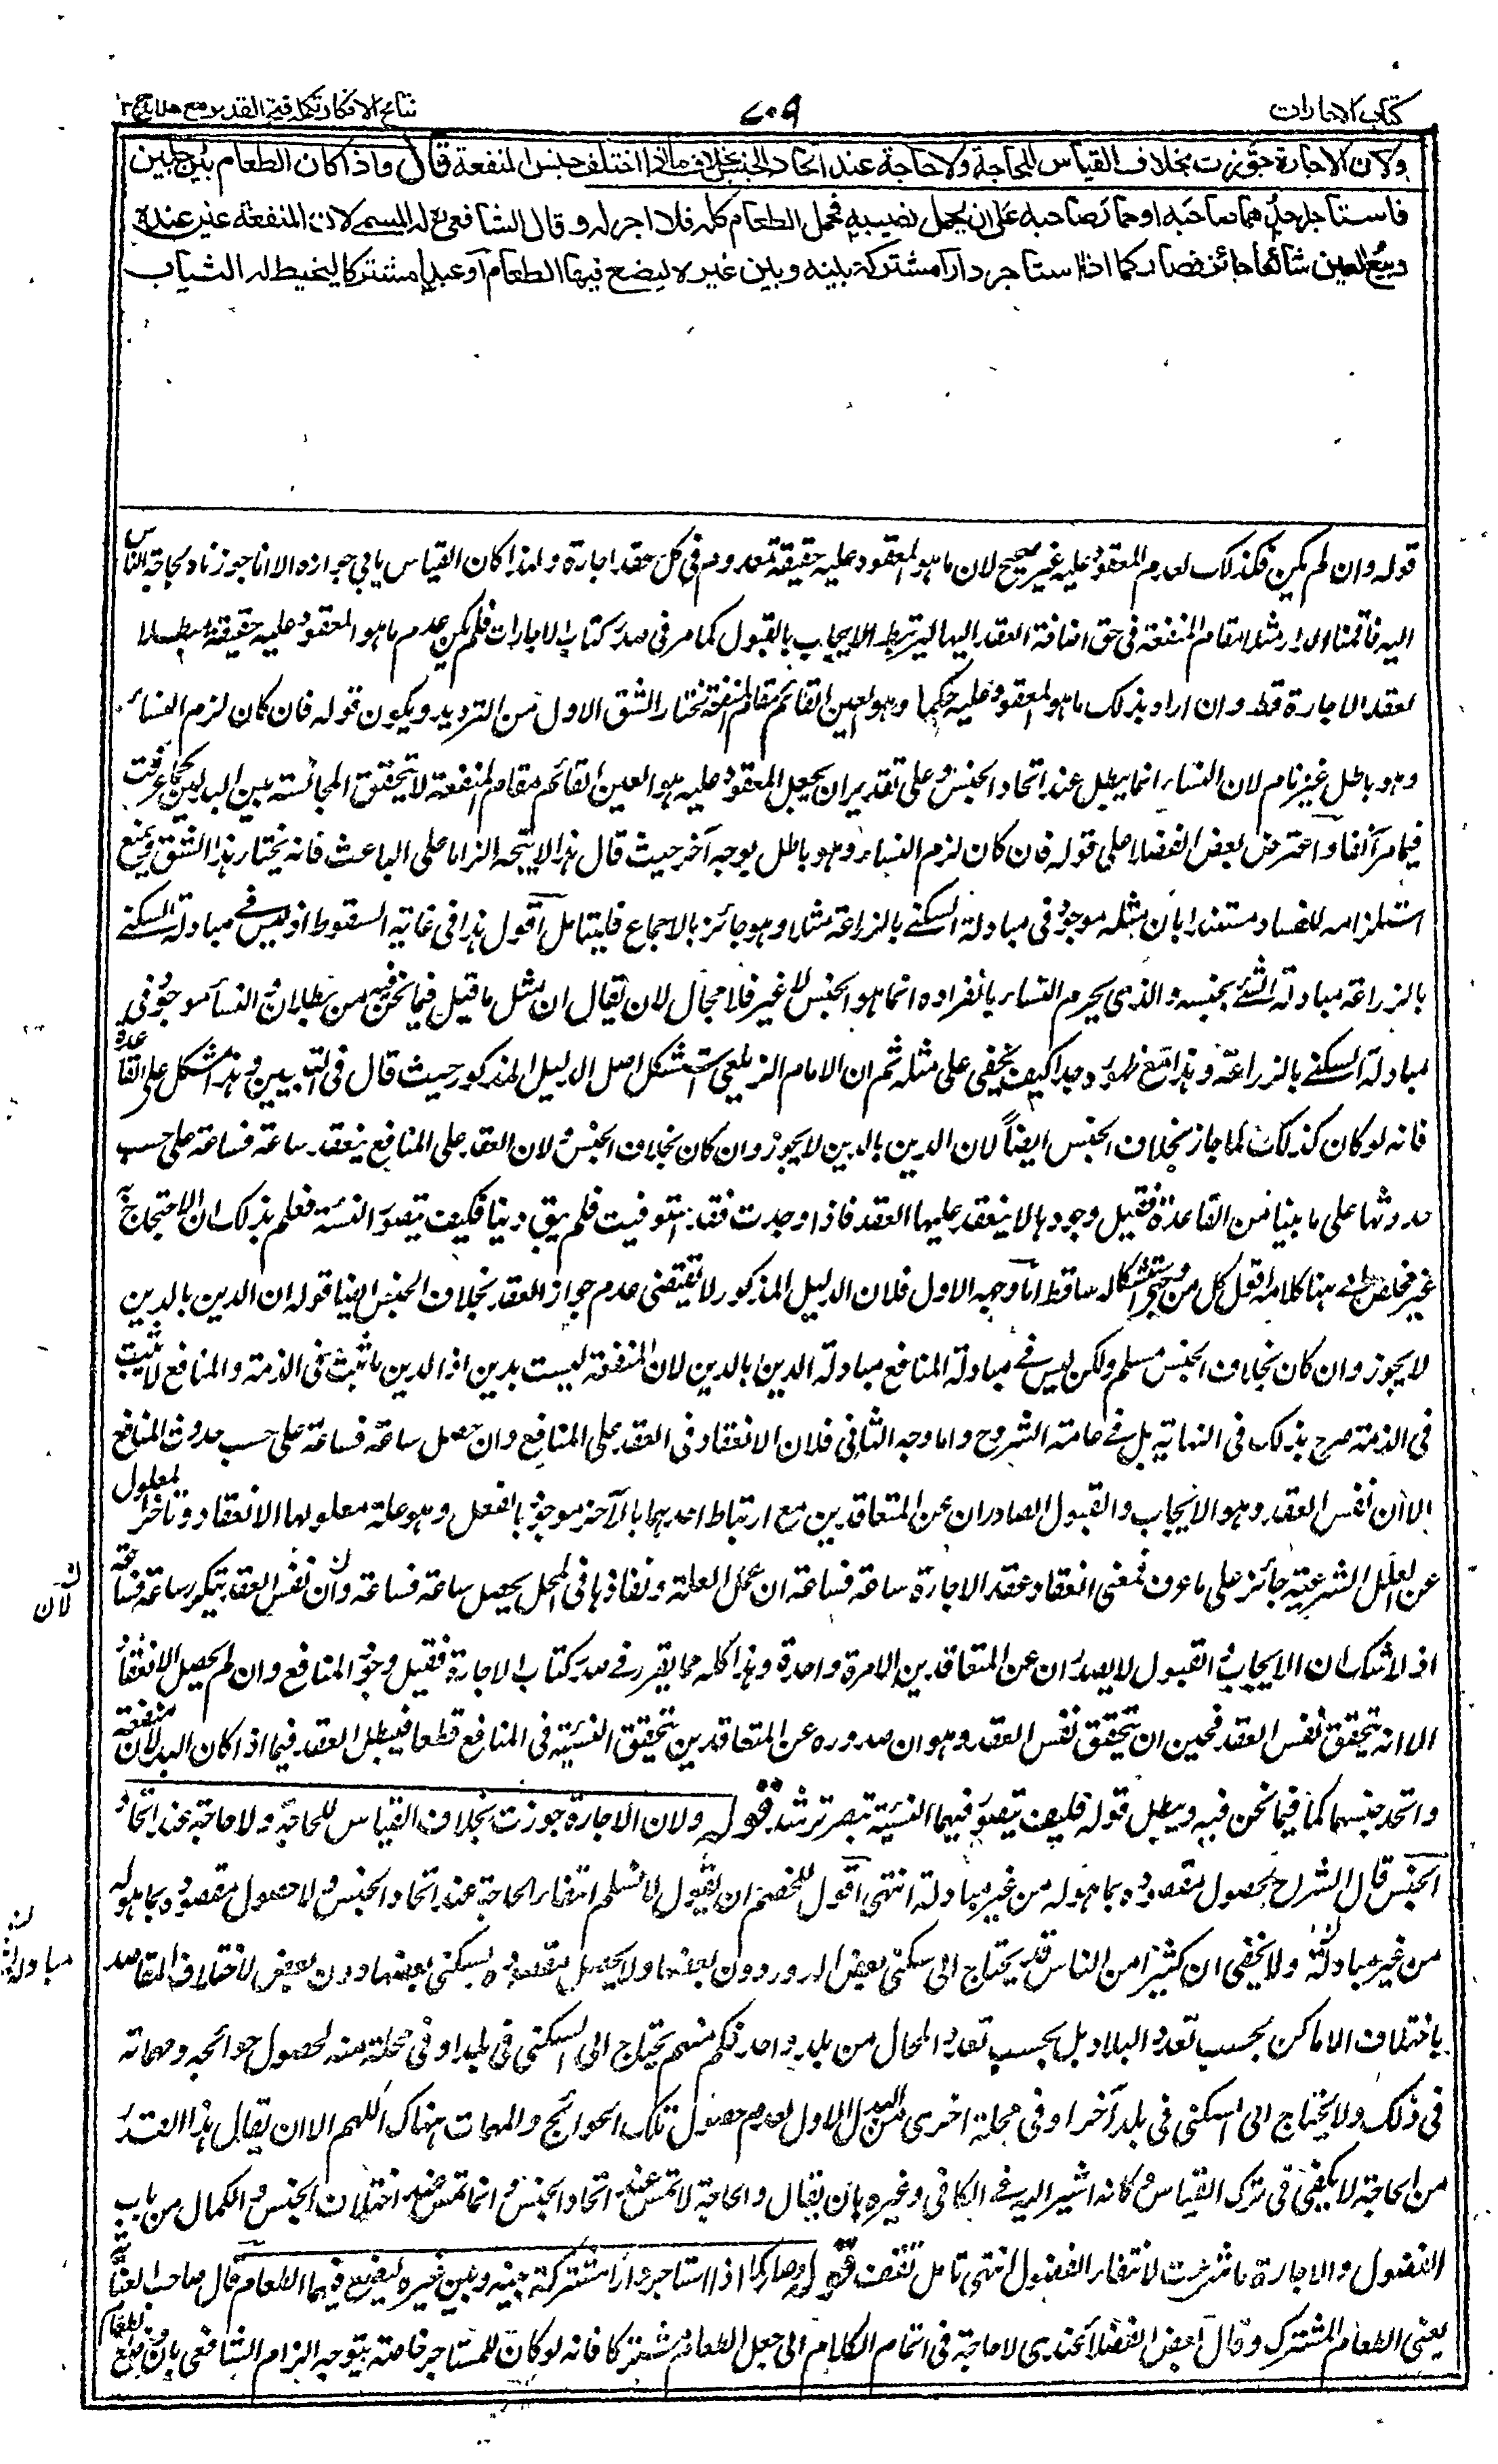 كتاب الاجارات
٧٠٩
نتائج الافكار تكملة فتح القدير مع هداية ج ٣
ولان الاجارة جوزت بخلاف القياس للحاجة ولا حاجة عند اتحاد الجنس بخلاف ما اذا اختلف جنس المنفعة قال واذا كان الطعام بين رجلين
فاستاجر احدهما صاحبه او حمار صاحبه على ان يحمل نصيبه فحمل الطعام كله فلا اجر له وقال الشافعي له المسمى لان المنفعة عين عنده
وبيع العين شائعا جائز فصار كما اذا استاجر دارا مشتركة بينه وبين غيره ليضع فيها الطعام او عبدا مشتركا ليخيط له الثياب
قوله وان لم يكن فكذلك لعدم المعقود عليه غير صحيح لان ما هو المعقود عليه حقيقة معدوم في كل عقد اجارة ولهذا كان القياس يابى جوازه الا انا جوزناه لحاجة الناس
اليه فاقمنا الدار مثلا مقام المنفعة في حق اضافة العقد اليها ليرتبط الايجاب بالقبول كما مر في صدر كتاب الاجارات فلم يكن عدم ما هو المعقود عليه حقيقة مبطلا
لعقد الاجارة قط وان اراد بذلك ما هو المعقود عليه حكما وهو العين القائم مقام المنفعة نختار الشق الاول من الترديد ويكون قوله فان كان لزم النساء
وهو باطل غير تام لان النساء انما يبطل عند اتحاد الجنس وعلى تقدير ان يجعل المعقود عليه هو العين القائم مقام المنفعة لا تتحقق المجانسة بين البدلين كما عرفت
فيما مر آنفا واعترض بعض الفضلاء على قوله فان كان لزم النساء وهو باطل بوجه آخر حيث قال هذا لا يتجه الزاما على الباعث فانه يختار هذا الشق ويمنع
استلزامه للفساد مستندا بان مثله موجود في مبادلة السكنى بالزراعة مثلا وهو جائز بالاجماع فليتامل اقول هذا في غاية السقوط اذ ليس في مبادلة السكنى
بالزراعة مبادلة الشئ بجنسه والذي يحرم النساء بانفراده انما هو الجنس لا غير فلا مجال لان يقال ان مثل ما قيل فيما نحن فيه من بطلان النسأ موجود في
مبادلة السكنى بالزراعة وهذا مع ظهوره جدا كيف يخفى على مثله ثم ان الامام الزيلعي استشكل اصل الدليل المذكور حيث قال في التبيين وهذا مشكل على القاعدة
فانه لو كان كذلك لما جاز بخلاف الجنس ايضاً لان الدين بالدين لا يجوز وان كان بخلاف الجنس ولان العقد على المنافع ينعقد ساعة فساعة على حسب
حدوثها على ما بينا من القاعدة فقبل وجودها لا ينعقد عليها العقد فاذا وجدت فقد استوفيت فلم يبق دينا فكيف يتصور النسئة فعلم بذلك ان الاحتجاج به
غير مخلص الى هنا كلامه اقول كل من وجهي استشكاله ساقط اما وجهه الاول فلان الدليل المذكور لا يقتضي عدم جواز العقد بخلاف الجنس ايضا قوله ان الدين بالدين
لا يجوز وان كان بخلاف الجنس مسلم ولكن ليس في مبادلة المنافع مبادلة الدين بالدين لان المنفعة ليست بدين اذ الدين ما ثبت في الذمة والمنافع لا تثبت
في الذمة صرح بذلك في النهاية بل في عامة الشروح واما وجه الثاني فلان الانعقاد في العقد على المنافع وان حصل ساعة فساعة على حسب حدوث المنافع
الا ان نفس العقد وهو الايجاب والقبول الصادران عن المتعاقدين مع ارتباط احدهما بالآخر موجود بالفعل وهو علة معلولها الانعقاد وتأخر المعلول
عن العلل الشرعية جائز على ما عرف فمعنى انعقاد عقد الاجارة ساعة فساعة ان عمل العلة ونفاذها في المحل يحصل ساعة فساعة وان نفس العقد يتكرر ساعة فساعة
لان
اذ لا شك ان الايجاب والقبول لا يصدران عن المتعاقدين الا مرة واحدة وهذا كله مما تقرر في صدر كتاب الاجارة فقبل وجود المنافع وان لم يحصل الانعقاد
الا انه تحقق نفس العقد فحين ان تحقق نفس العقد وهو ان صدوره عن المتعاقدين تحقق النسئية في المنافع قطعا فيبطل العقد فيما اذا كان البدلان منفعة
واتحد جنسهما كما فيما نحن فيه ويبطل قوله فكيف يتصور فيهما النسئية تبصر ترشد قوله ولان الاجارة جوزت بخلاف القياس للحاجة ولا حاجة عند اتحاد
الجنس قال الشراح لحصول مقصوده بما هو له من غير مبادلة انتهى اقول للخصم ان يقول لا نسلم انتفاء الحاجة عند اتحاد الجنس ولا حصول مقصوده بما هو له
من غير مبادلة ولا يخفى ان كثيرا من الناس قد يحتاج الى سكنى بعض الدور دون بعضها ولا يحصل مقصوده بسكنى بعضها دون بعض لاختلاف المقاصد
باختلاف الاماكن بحسب تعدد البلاد بل بحسب تعدد المحال من بلد واحد فكم منهم يحتاج الى السكنى في بلد او في محلة منه لحصول حوائجه ومهماته
في ذلك ولا يحتاج الى السكنى في بلد آخر او في محلة اخرى من البلد الاول لعدم حصول تلك الحوائج والمهمات هناك اللهم الا ان يقال هذا القدر
من الحاجة لا يكفي في ترك القياس وكانه اشير اليه في الكافي وغيره بان يقال والحاجة لا تمس عند اتحاد الجنس وانما تمس عند اختلاف الجنس والكمال من باب
الفضول والاجارة ما شرعت لابتغاء الفضول انتهى تامل تقف قوله وصار كما اذا استاجر دارا مشتركة بينه وبين غيره ليضع فيها الطعام قال صاحب العناية
يعني الطعام المشترك وقال بعض الفضلا عندي لا حاجة في اتمام الكلام الى جعل الطعام مشتركا فانه لو كان للمستاجر خاصة يتوجه الزام الشافعي بان وضع الطعام